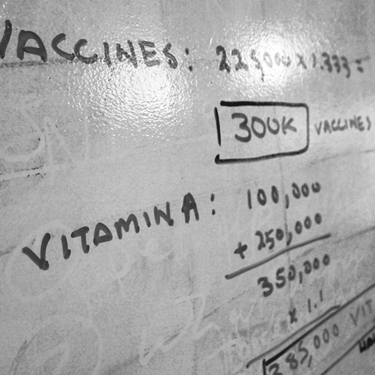 VACCINES: 225,000 x 1.333 =
300K VACCINES
VITAMIN A: 100,000
+ 250,000
350,000
x 1.1
385,000 VIT